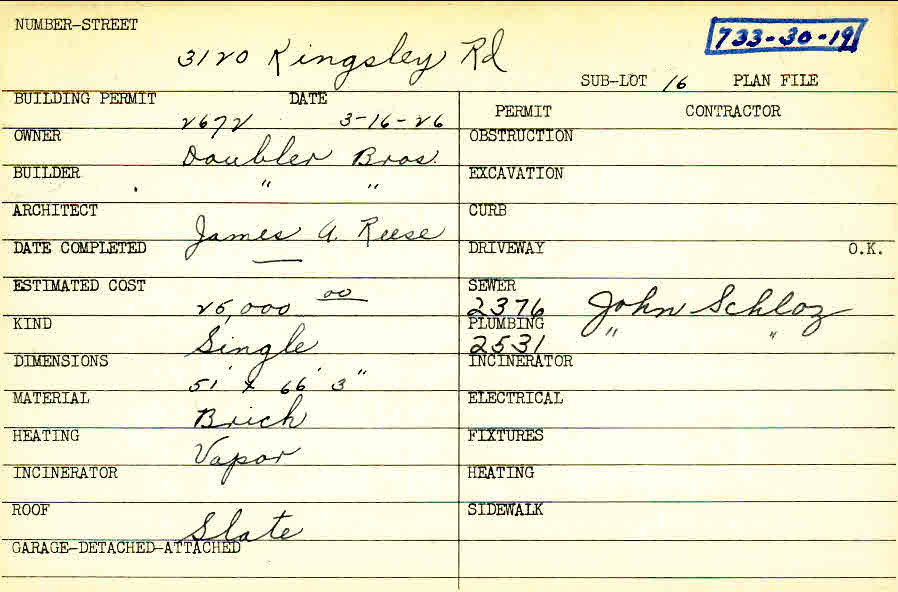 NUMBER-STREET
3120 Kingsley Rd
733-30-19
SUB-LOT 16 PLAN FILE
BUILDING PERMIT DATE
2672 3-16-26
PERMIT CONTRACTOR
OWNER Doubler Bros.
OBSTRUCTION
BUILDER " "
EXCAVATION
ARCHITECT James A. Reese
CURB
DATE COMPLETED —
DRIVEWAY O.K.
ESTIMATED COST 25,000 00
SEWER
2376 John Schloz
KIND Single
PLUMBING " "
2531
DIMENSIONS 51' x 66' 3"
INCINERATOR
MATERIAL Brick
ELECTRICAL
HEATING Vapor
FIXTURES
INCINERATOR
HEATING
ROOF Slate
SIDEWALK
GARAGE-DETACHED-ATTACHED